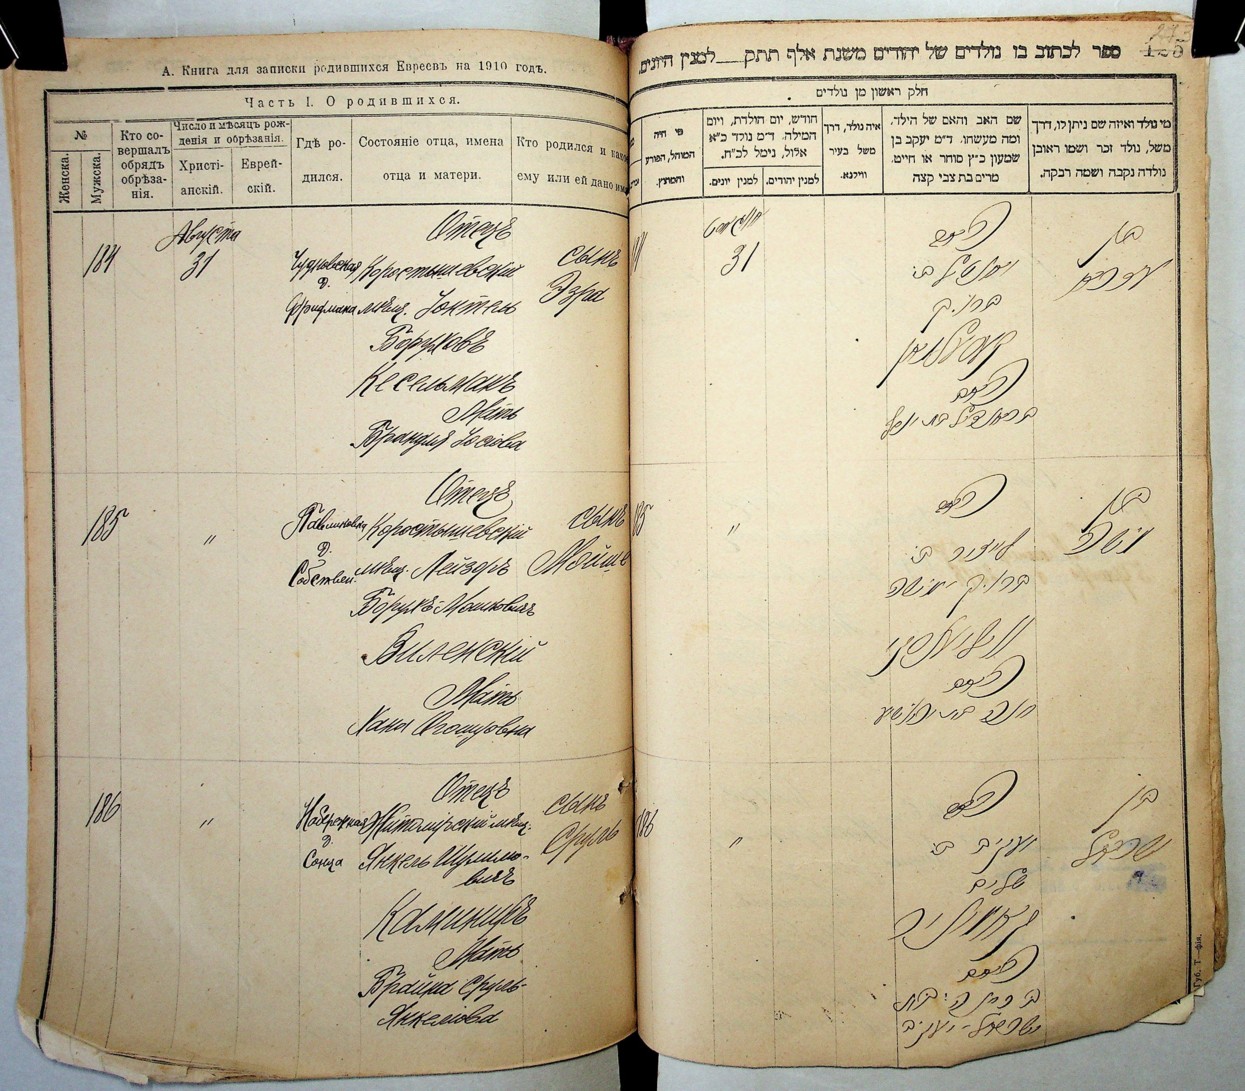 А. Книга для записки родившихся Евреевъ на 1910 годъ.
Часть I. О родившихся.
№
Женска.
Мужска.
Кто совершалъ обрядъ обрѣзанія.
Число и мѣсяцъ рожденія и обрѣзанія.
Христіанскій.
Еврейскій.
Гдѣ родился.
Состояніе отца, имена отца и матери.
Кто родился и
ему или ей дано
184
Августа
31
Чудновская
д.
Фридмана
Отецъ
Коростышевскій
мѣщ. Іоктель
Боруховъ
Кесельманъ
Мать
Брандля Іосіова
сынъ
Эзра
185
"
Павликовка
д.
Собствен.
Отецъ
Коростышевскій
мѣщ. Лейзоръ
Борухъ-Мошковичъ
Виленскій
Мать
Хана
сынъ
Мойше
186
"
Набережная
д.
Сонца
Отецъ
Житомірскій мѣщ.
Янкель Шулимовичъ
Каминицъ
Мать
Брайна Сруль-
Янкеліова
сынъ
Сруль
ספר לכתוב בו נולדים של יהודים משנת אלף תתק__למנין היונים.
חלק ראשון מן נולדים
מי נולד ואיזה שם ניתן לו, דרך משל, נולד זכר ושמו ראובן נולדה נקבה ושמה רבקה.
שם האב והאם של הילד. ומה מעשהו. ד״מ יעקב בן שמעון כ״ץ סוחר או חיים. מרים בת צבי קצה
איה נולד, דרך משל בעיר ווילנא.
חודש, יום הולדת, ויום המילה. ד״מ נולד כ״א אלול, נימל לכ״ח.
למנין יהודים.
למנין יונים.
מי היה המוהל, הפורע והמוצץ.
31
בן
עזרא
האב
יקותיאל ב׳
ברוך
קעסעלמאן
האם
בריינדל בת יוסף
185
"
בן
משה
האב
אליעזר ב׳
ברוך משה
ווילענסקי
האם
186
"
בן
ישראל
האב
יעקב ב׳
שלום
קאמיניץ
האם
ישראל-יעקב
Губ. Т—фія.